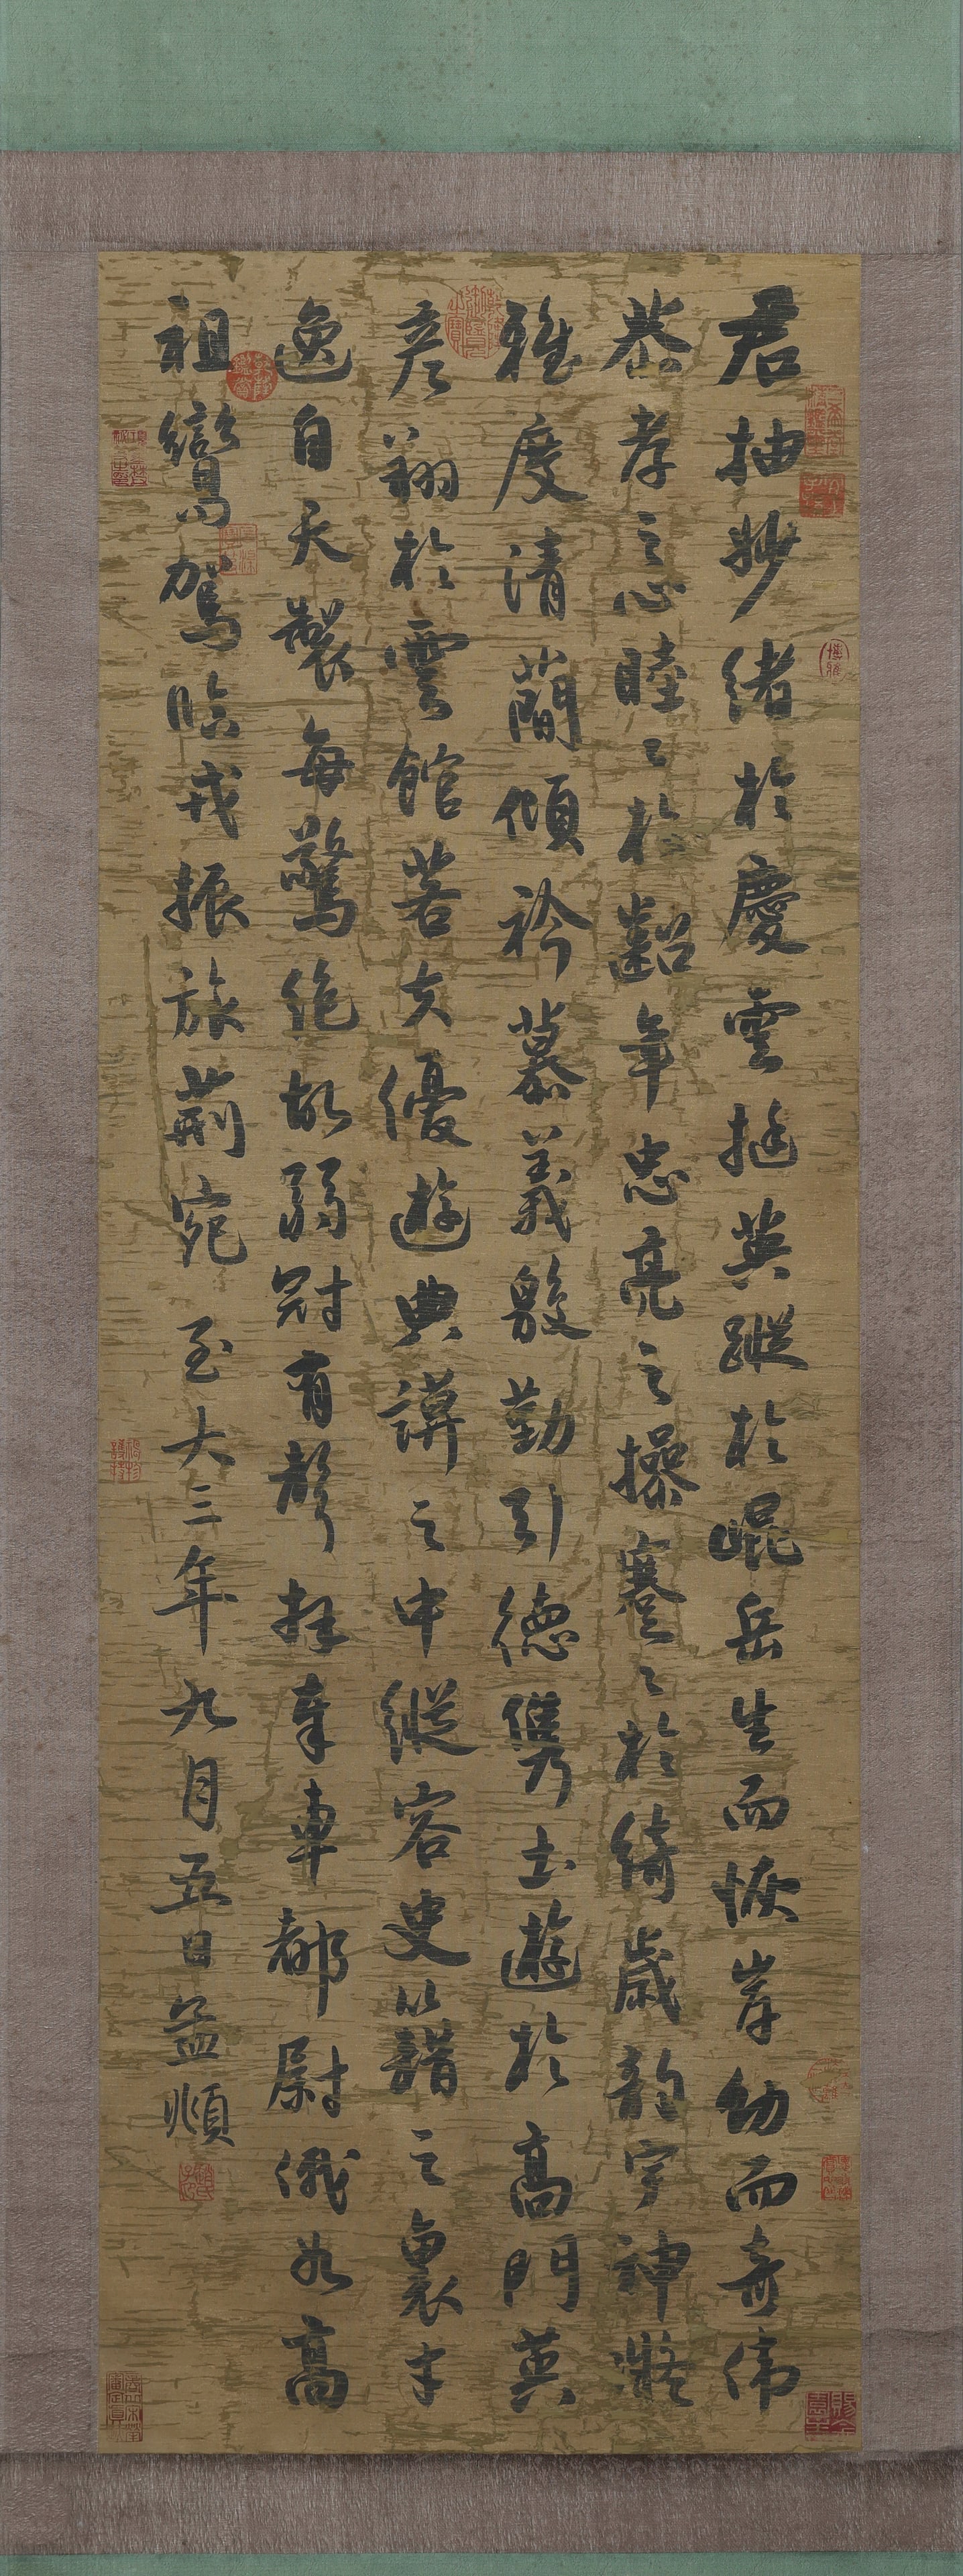 君抽妙緒於慶雲挺英蹤於崐岳生而恢岸幼而奇偉
恭孝之心睦〻於齠年忠亮之操蹇〻於綺歳韵宇神凝
雅度清蕳傾衿慕義慇勤引德儁士遊於高門英
彦翔於雲館若夫優遊典謨之中縱容史以籍之裏才
逸自天製每驚絶故弱冠有聲拜奉車都尉俄如高
祖鸞駕臨戎振旅荊宛 至大三年九月五日孟頫